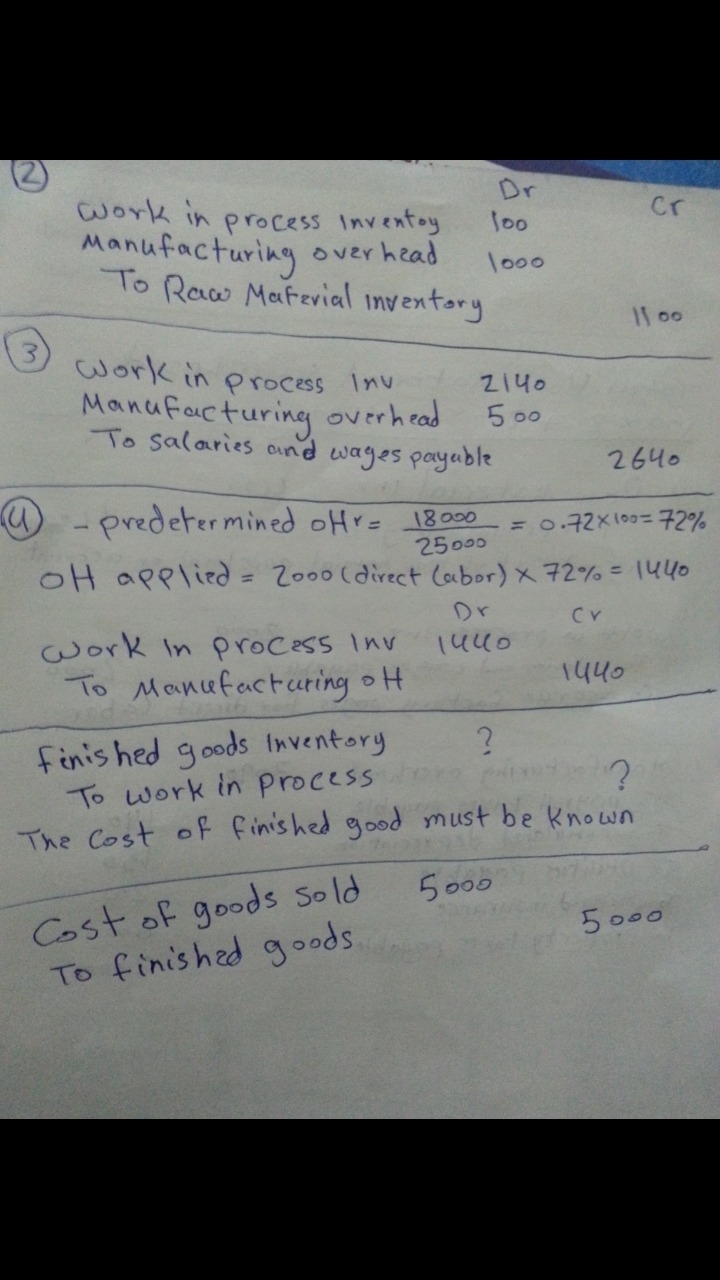 2
Dr Cr
Work in process Inventoy 100
Manufacturing overhead 1000
To Raw Material inventory 1100
3
Work in process Inv 2140
Manufacturing overhead 500
To salaries and wages payable 2640
4 - predetermined oHr = 18000/25000 = 0.72x100= 72%
OH applied = 2000 (direct labor) x 72% = 1440
Dr Cr
Work In process Inv 1440
To Manufacturing oH 1440
finished goods Inventory ?
To work in process ?
The cost of finished good must be known
Cost of goods sold 5000
To finished goods 5000